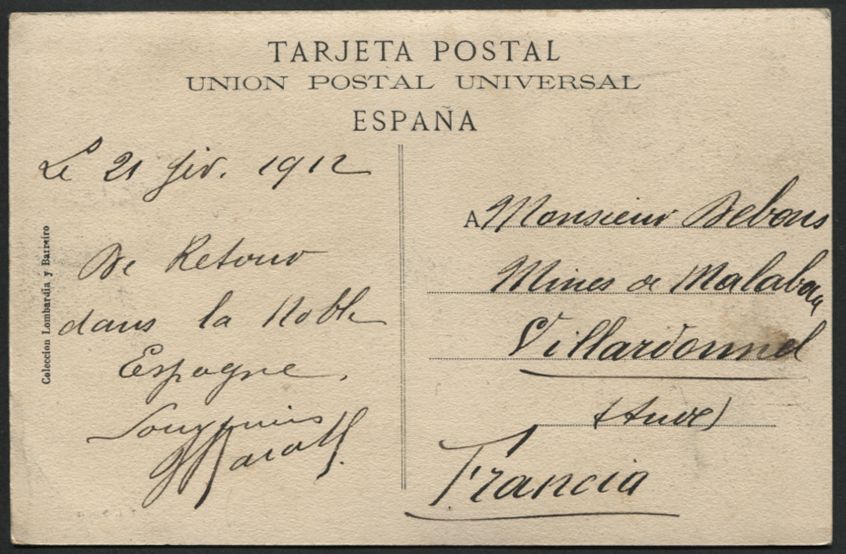 TARJETA POSTAL
UNION POSTAL UNIVERSAL
ESPAÑA
Le 21 fev. 1912
De Retour
dans la Noble
Espagne.
Souvenirs
Coleccion Lombardia y Barreiro
A Monsieur Debons
Mines de
Villardonnel
(Aude)
Francia